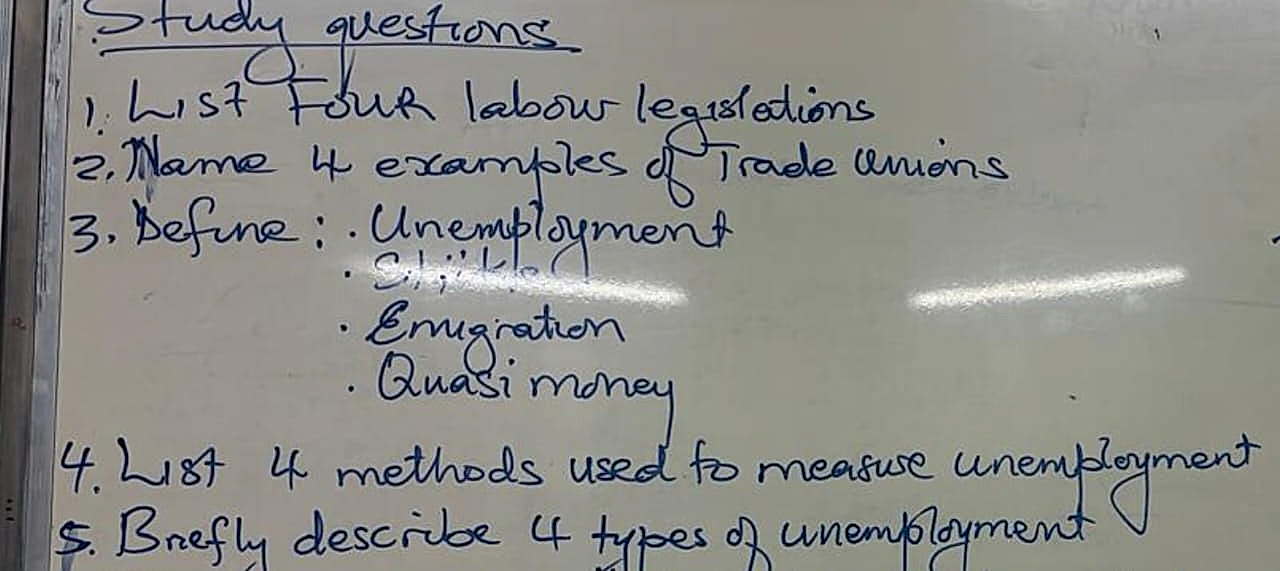 Study questions
1. List Four labour legislations
2. Name 4 examples of Trade Unions
3. Define : . Unemployment
.
. Emigration
. Quasi money
4. List 4 methods used to measure unemployment
5. Briefly describe 4 types of unemployment